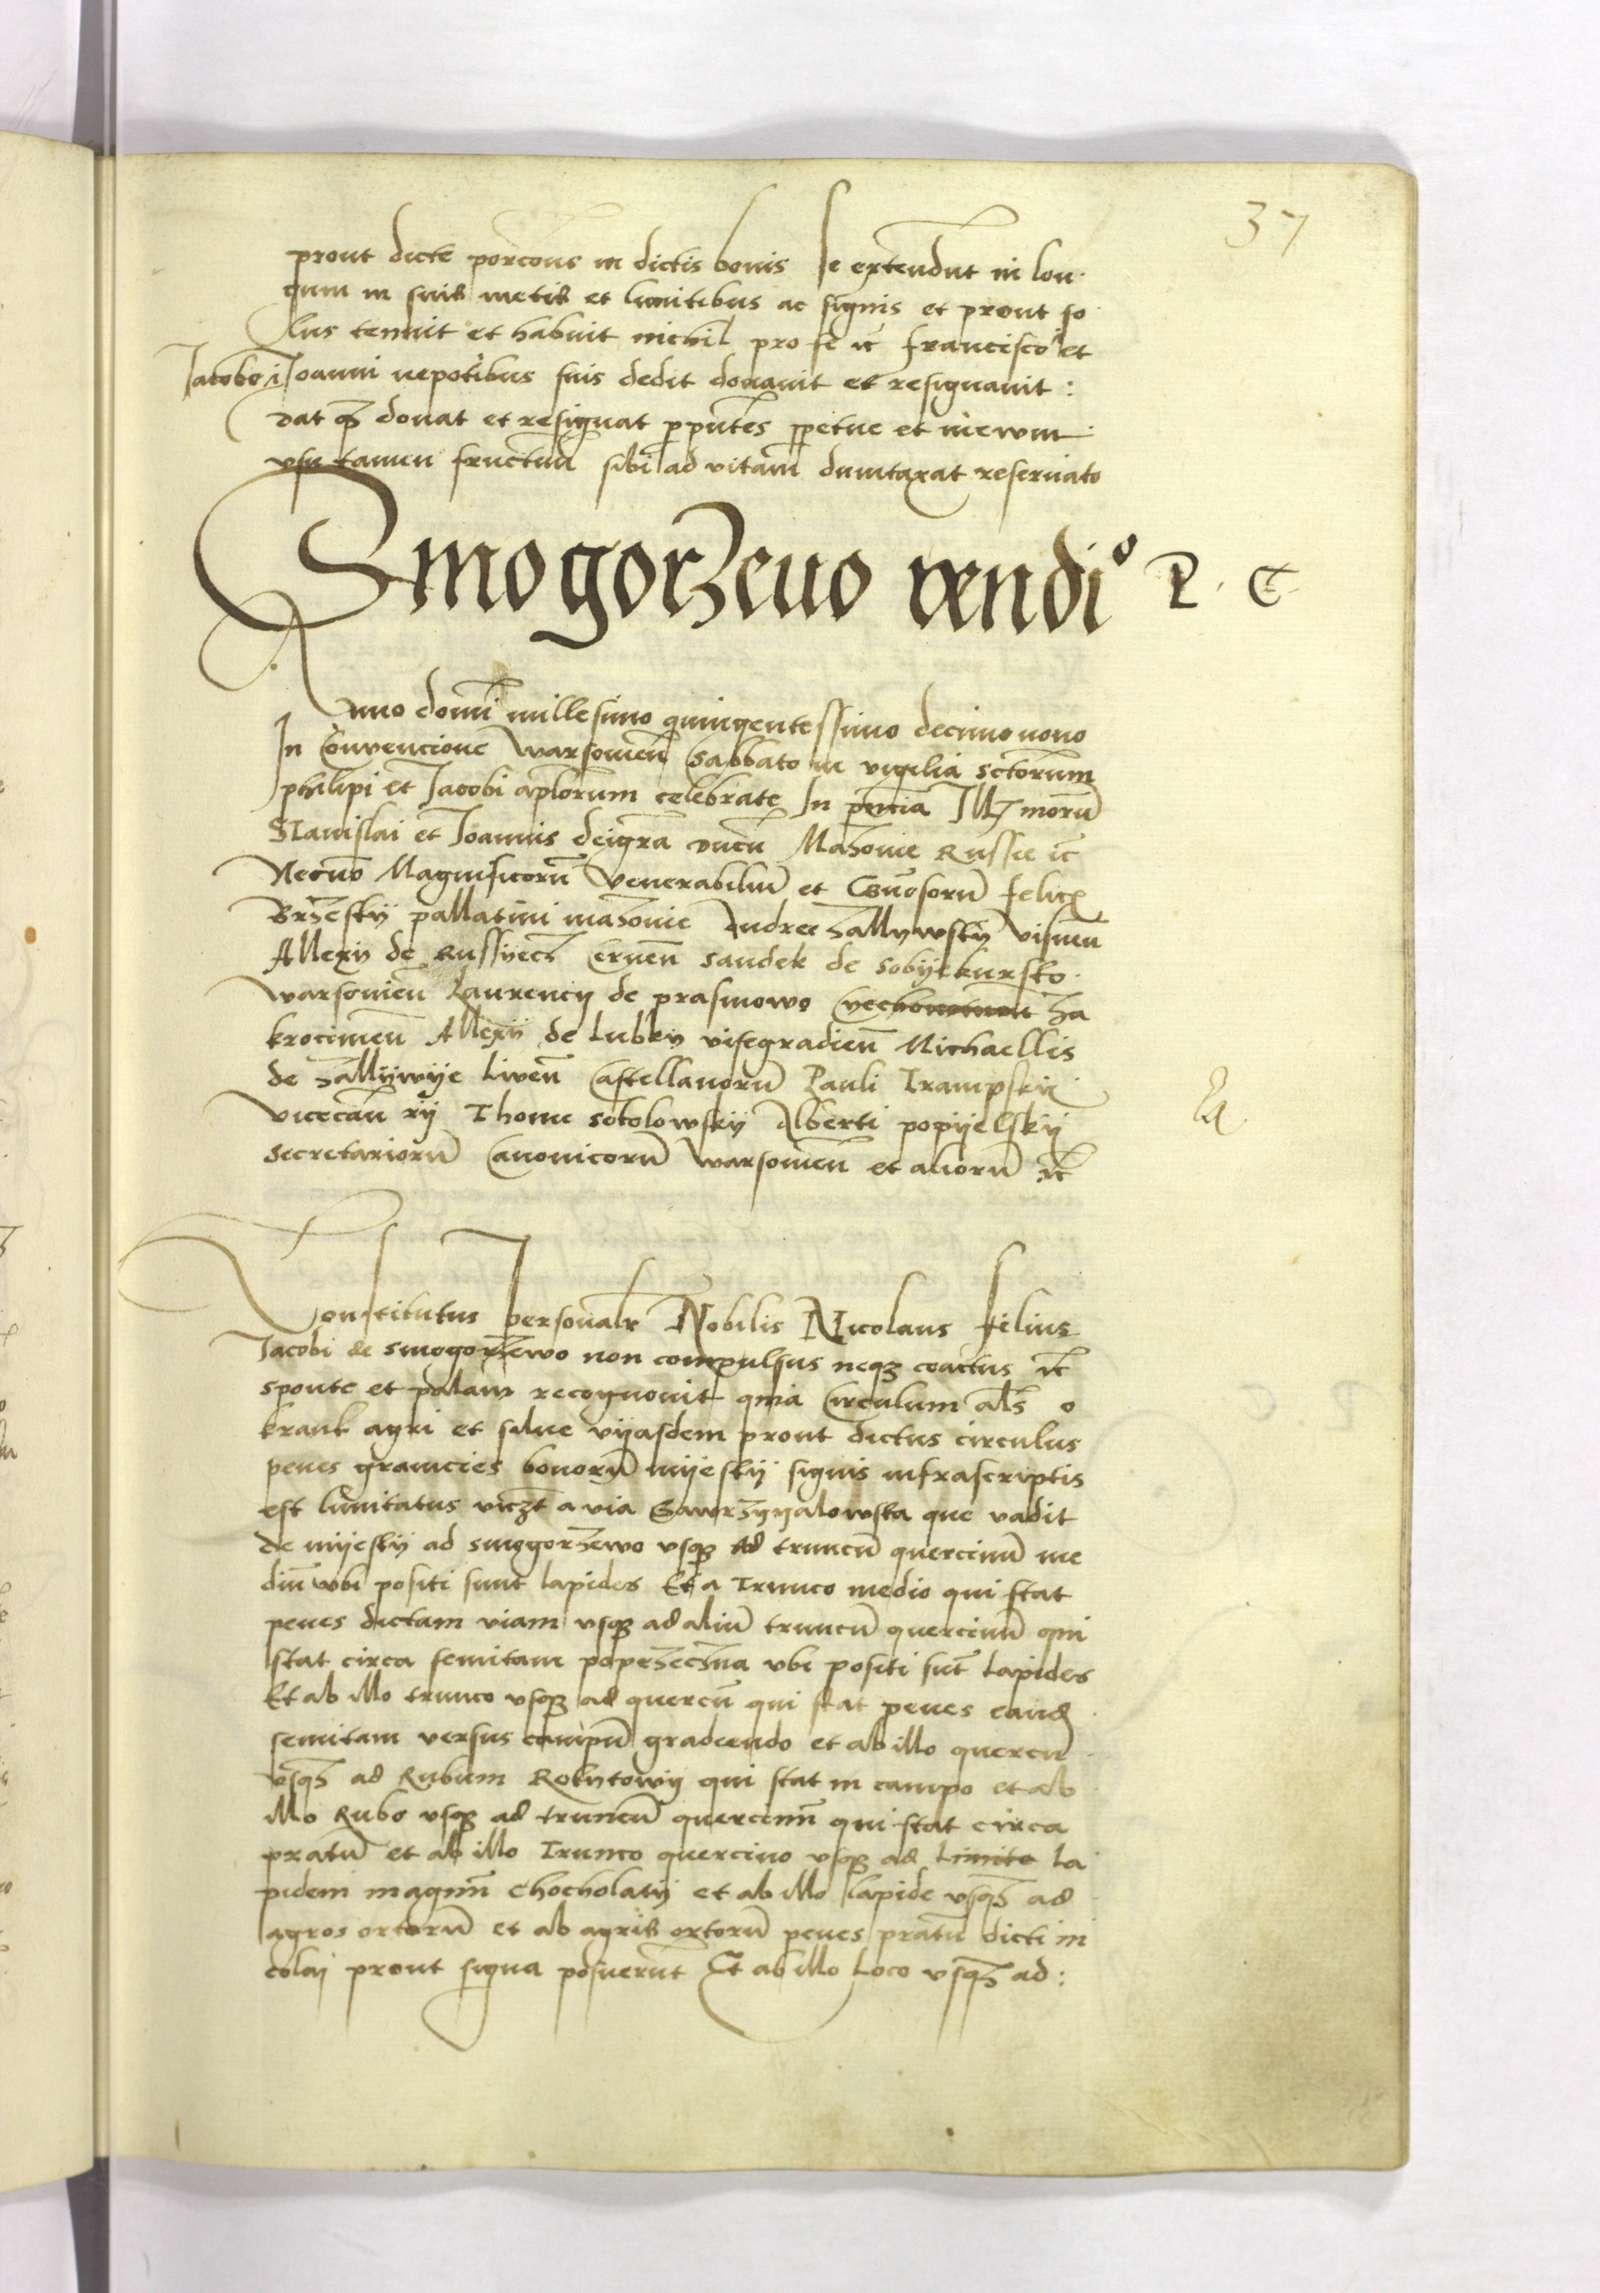 37
prout dicte porcões in dictis bonis se extendunt in lon
gum in suis metis et limitibus ac signis et prout so
lus tenuit et habuit nichil pro se etc francisco et
Jacobo et Joanni nepotibus suis dedit donavit et resignavit :
Dat q3 donat et resignat p pñtes ppetue et
usu tamen fructum sibi ad vitam dumtaxat reservato
Smogorzevo vendio P. C.
Anno domi millesimo quingentessimo decimo nono
In Convencione Warsovien Sabbato in vigilia sctorum
philipi et Jacobi aplorum celebrate In pñcia Ill morũ
Stanislai et Joannis dei grã ducũ Mazovie Russie etc
Necnõ Magnificorũ venerabiliũ et Genosorũ felicz
Brzesky pallatini mazovie Andree Zallywsky visneñ
Allexy de Russyecz Cernen sandek de sobyekursko
Warsovien Laurency de prasmowo Czechonovien Za
krocimen Allexy de Lubky visegradien Michaellis
de Zallywye Liven Castellanorũ Pauli Trampsky
vicecan rij Thome sokolowsky Alberti popyelsky
secretariorũ Canonicorũ Warsovien et aliorũ etc
Constitutus personalr Nobilis Nicolaus filius
Jacobi de smogorzewo non compulsus neq3 coactus etc
sponte et palam recognovit quia Circulum als o
krank agri et silve vyasdem prout dictus circulus
penes granicies bonorũ myesky signis infrascriptis
est limitatus viczt a via Gawrzyyalowska que vadit
de myesky ad smogorzewo usq3 ad truncũ quercinũ me
diũ ubi positi sunt lapides Et a Trunco medio qui stat
penes dictam viam usq3 ad aliũ truncũ quercinũ qui
stat circa semitam poprzeczna ubi positi sũt Lapides
Et ab illo trunco usq3 ad quercũ qui stat penes eand
semitam versus campũ gradiendo et ab illo quercu
usq3 ad Rubum Rokytowy qui stat in campo et ab
illo Rubo usq3 ad truncũ quercinũ qui stat circa
pratũ et ab illo Trunco quercino usq3 ad Limite La
pidem magnũ chocholaty et ab illo lapide usq3 ad
agros ortorũ et ab agris ortorũ penes pratũ dicti ni
colaj prout signa posuerũt Et ab illo Loco usq3 ad :